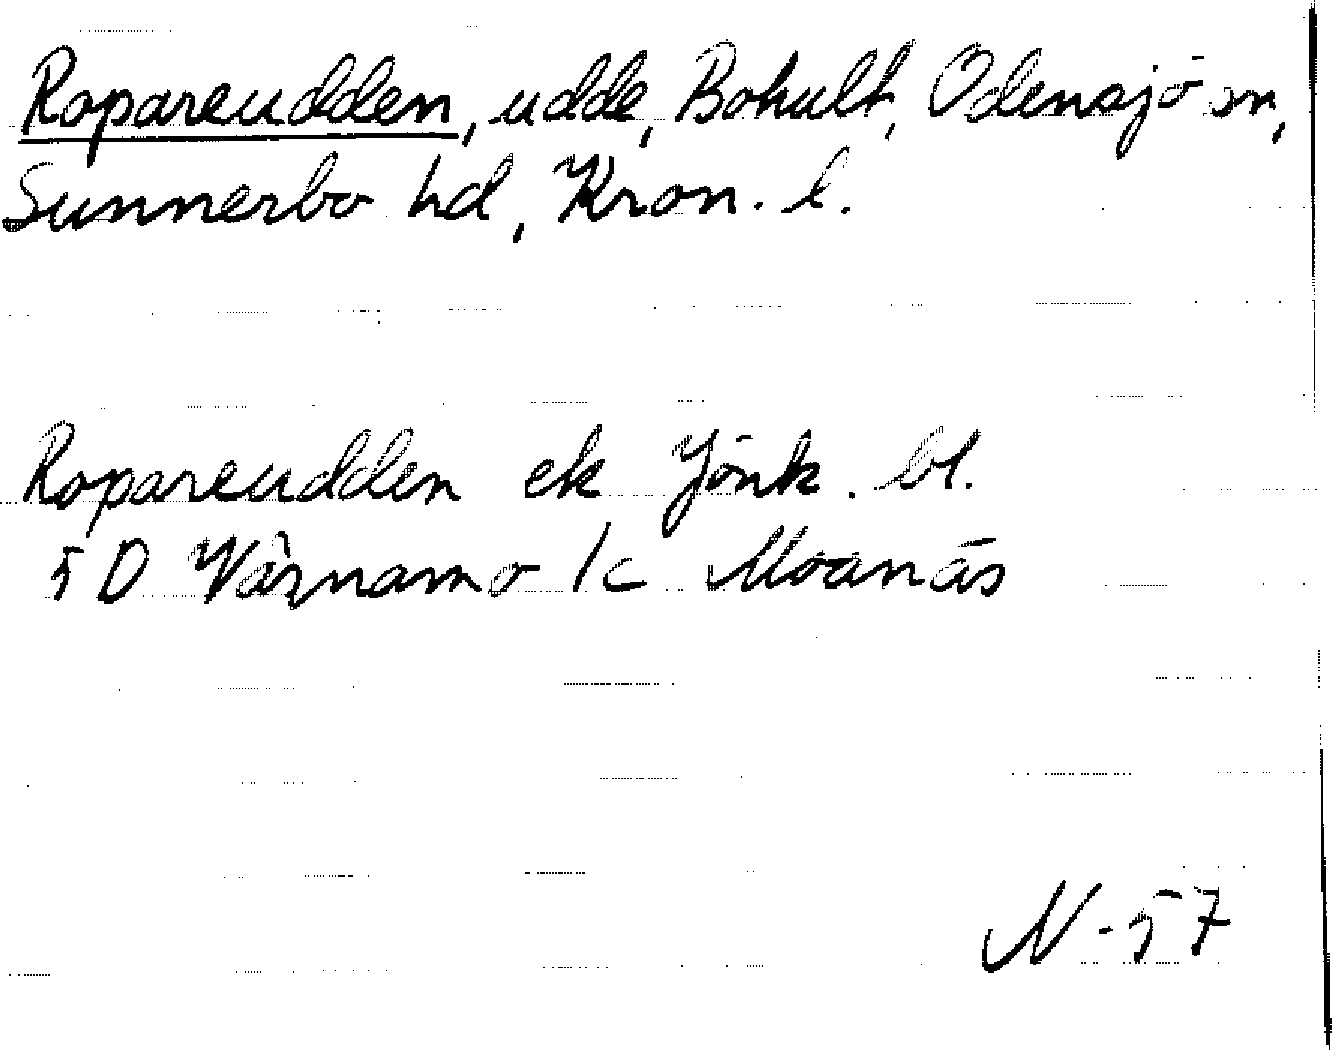 Ropareudden, udde, Bohult, Odensjö sn,
Sunnerbo hd, Kron. l.
Ropareudden ek Jönk. bl.
5D Värnamo 1c Moanäs
N-57